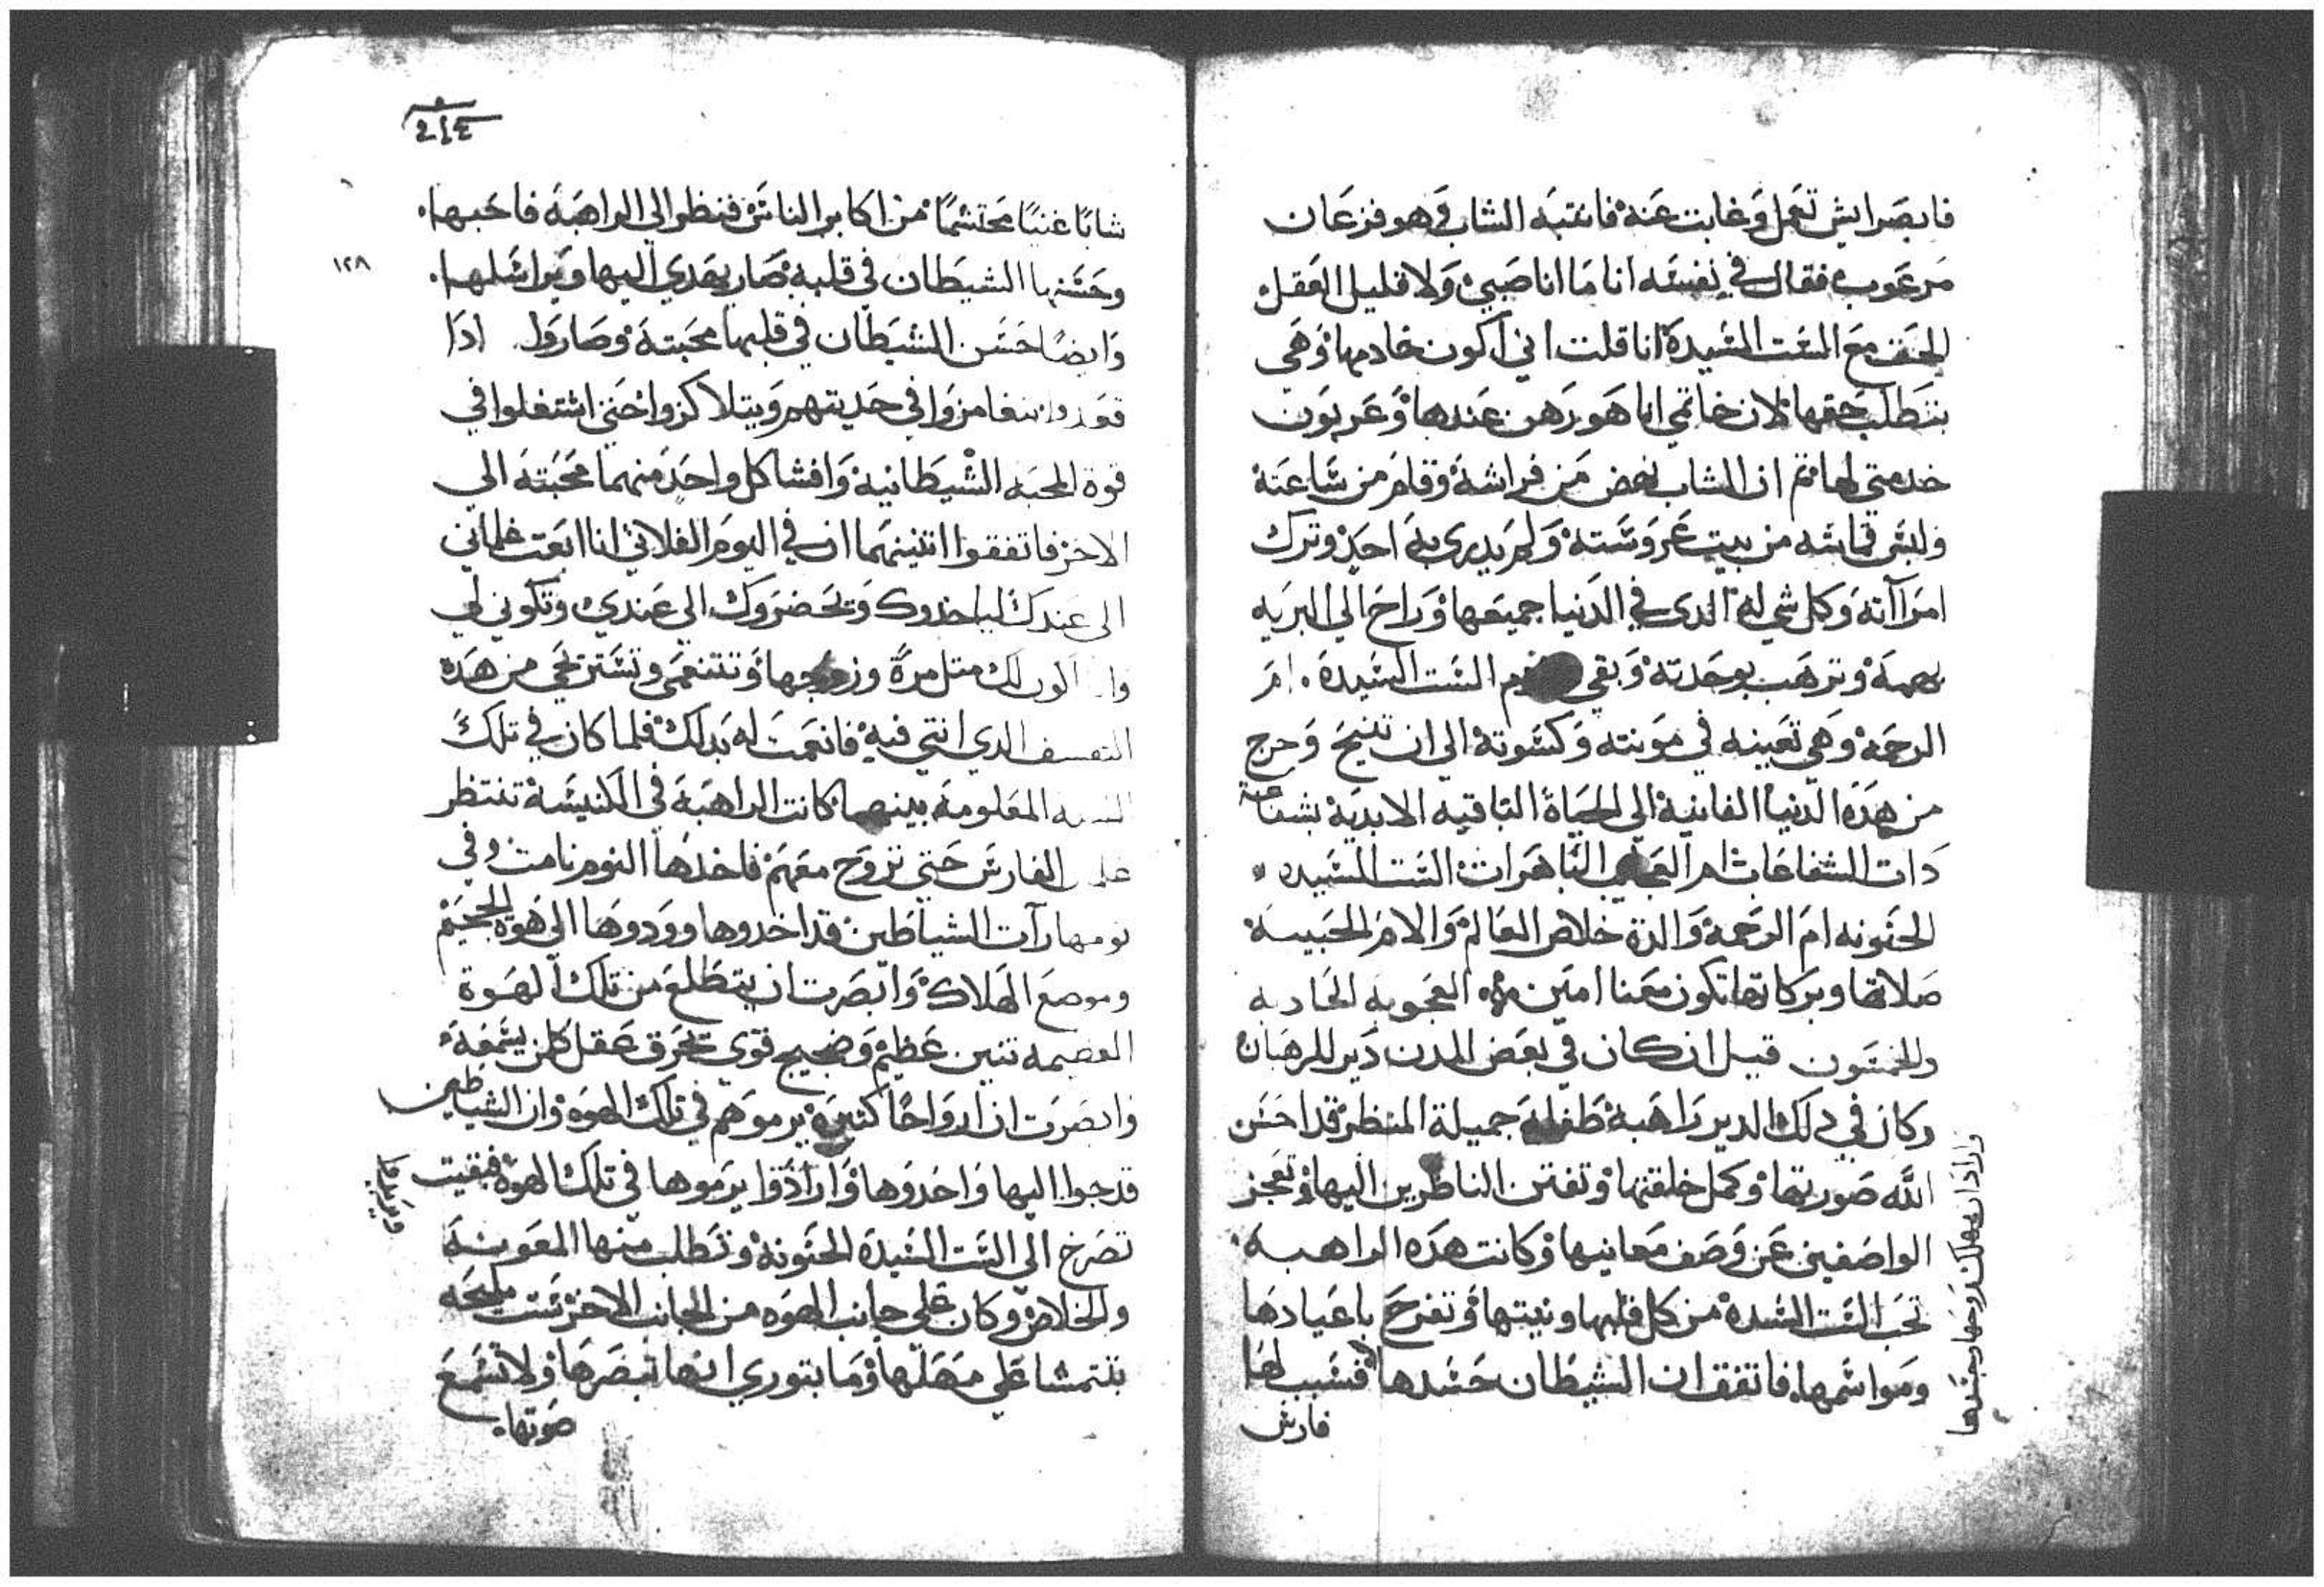 فابصر ايش تعمل وغابت عنه فانتبه الشاب وهو فزعان
مرعوب فقال في نفسه انا ما انا صبي ولا قليل العقل
الحق مع الست السيدة انا قلت اني اكون خادمها وهي
بتطلب حقها لان خاتمي انا هو رهن عندها وعربون
خدمتي لها تم ان الشاب نهض من فراشه وقام من ساعته
ولبس قماشه من بيت عروسته ولم يدري به احد وترك
امراآته وكل شي له الدي في الدنيا جميعها وراح الي البريه
وترهب بوحدته وبقي الست السيدة ام
الرحمه وهي تعينه في مونته وكسوته الي ان تنيح وخرج
من هده الدنيا الفانية الي الحياة الباقيه الابدية بشفاعة
دات الشفاعات ام العجايب الباهرات الست السيده
الحنونه ام الرحمة والدة خلاص العالم والام الحبيبة
صلاتها وبركاتها تكون معنا امين العجوبه الحاديه
والخمسون قيل ان كان في بعض المدن دير للرهبان
وكان في دلك الدير راهبة طفلة جميلة المنظر قد احسن
الله صورتها وكمل خلقتها وتفتن الناظرين اليها وتعجز
الواصفين عن وصف معانيها وكانت هده الراهبه
تحب الست السده من كل قلبها ونيتها وتفرح باعيادها
ومواسمها فاتفق ان الشيطان حسدها فسبب لها
واراد ان يهلك روحها وجسدها
فارس
214
شابا غنيا محتشما من اكابر الناس فنظر الي الراهبة فاحبها
١٢٨
وحسنها الشيطان في قلبه صار يهدي اليها ويراسلها
وايضا حسن الشيطان في قلبها محبته وصاروا ادا
قعدوا يتغامزوا في حديتهم ويتلاكزوا حتي اشتغلوا في
قوة المحبه الشيطانية وافشا كل واحد منهما محبته الي
الاخر فاتفقوا اتنينهما ان في اليوم الفلاني انا ابعت غلماني
الي عندك لياخدوك وتحضروك الي عندي وتكوني لي
وانا اكون لك متل مرة وزوجها وتتنعمي وتستريحي من هده
التعسف الدي انتي فيه فانعمت له بدلك فلما كان في تلك
المعلومة بينهما كانت الراهبة في الكنيسة تنتظر
الفارس حتي تروح معهم فاخدها النوم نامت وفي
نومها رآت الشياطين قد اخدوها وودوها الي هوة الجحيم
وموضع الهلاك وابصرت ان يتطلع من تلك الهوة
العضيمه تنين عظيم وضجيج قوي تحرق عقل كلمن يسمعه
وابصرت ان ارواحا كتيرة يرموهم في تلك الهوه وان الشياطين
قد جوا اليها واخدوها وارادوا يرموها في تلك الهوة فبقيت
ويبدوا
تصرخ الي الست السيدة الحنونة وتطلب منها المعونة
والخلاص وكان علي جانب الهوه من الجانب الاخر ست مليحه
بتتمشا علي مهلها وما بتوري انها تبصرها ولا تسمع
صوتها